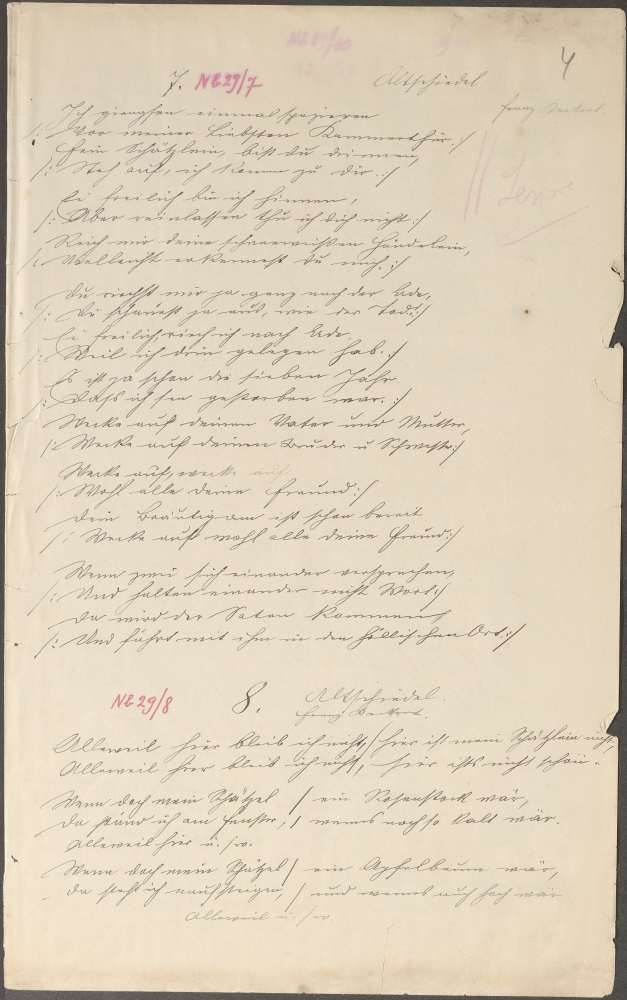 4
7. NB 29/7 Altschiedel
Franz
Ich ging einmal spazieren
/: Vor meiner Liebsten Kammerthür. :/
Fein Schätzlein, bist du drinnen,
/: Steh auf, ich komm zu dir. :/
Ei freilich bin ich hinnen,
/: Aber reinlassen thu ich dich nicht :/
Reich mir deine schneeweißen Händelein,
/: Vielleicht erkennest du mich. :/
Du riechst mir ja ganz nach der Erde,
/: Du schauest ja aus, wie der Tod. :/
Ei freilich, riech ich nach Erde,
/: Weil ich drin gelegen hab. :/
Es ist ja schon die sieben Jahr
/: Dass ich gestorben war. :/
Wecke auf deinen Vater und Mutter,
/: Wecke auf deinen Bruder u Schwester :/
Wecke auf, wecke auf
/: Wohl alle deine Freund :/
Dein Bräutigam ist schon bereit
/: Wecke auf wohl alle deine Freund :/
Wenn zwei sich einander versprechen,
/: Und halten einander nicht Wort :/
Da wird der Satan kommen,
/: Und führt mit ihm in den höllischen Ort. :/
NB 29/8 8. Altschiedel.
Franz
Alleweil hier bleib ich nicht, / hier ist mein Schätzlein nicht,
Alleweil hier bleib ich nicht, hier ists nicht schön.
Wenn doch mein Schätzel / ein Rosenstock wär,
Da stünd ich am Fenster, / wenns noch so kalt wär.
Alleweil hier u. s. w.
Wenn doch mein Schätzel / ein Apfelbaum wär,
da steht ich naufsteigen, / und wenns auch hoch wär
Alleweil u. s. w.